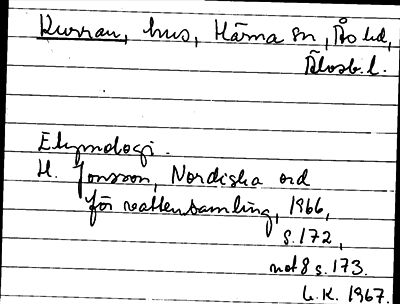 Kurran, hus, Härna sn, Ås hd,
Älvsb. l.
Etymologi.
H. Jonsson, Nordiska ord
för vattensamling, 1966,
s. 172,
not 8 s. 173.
L.K. 1967.